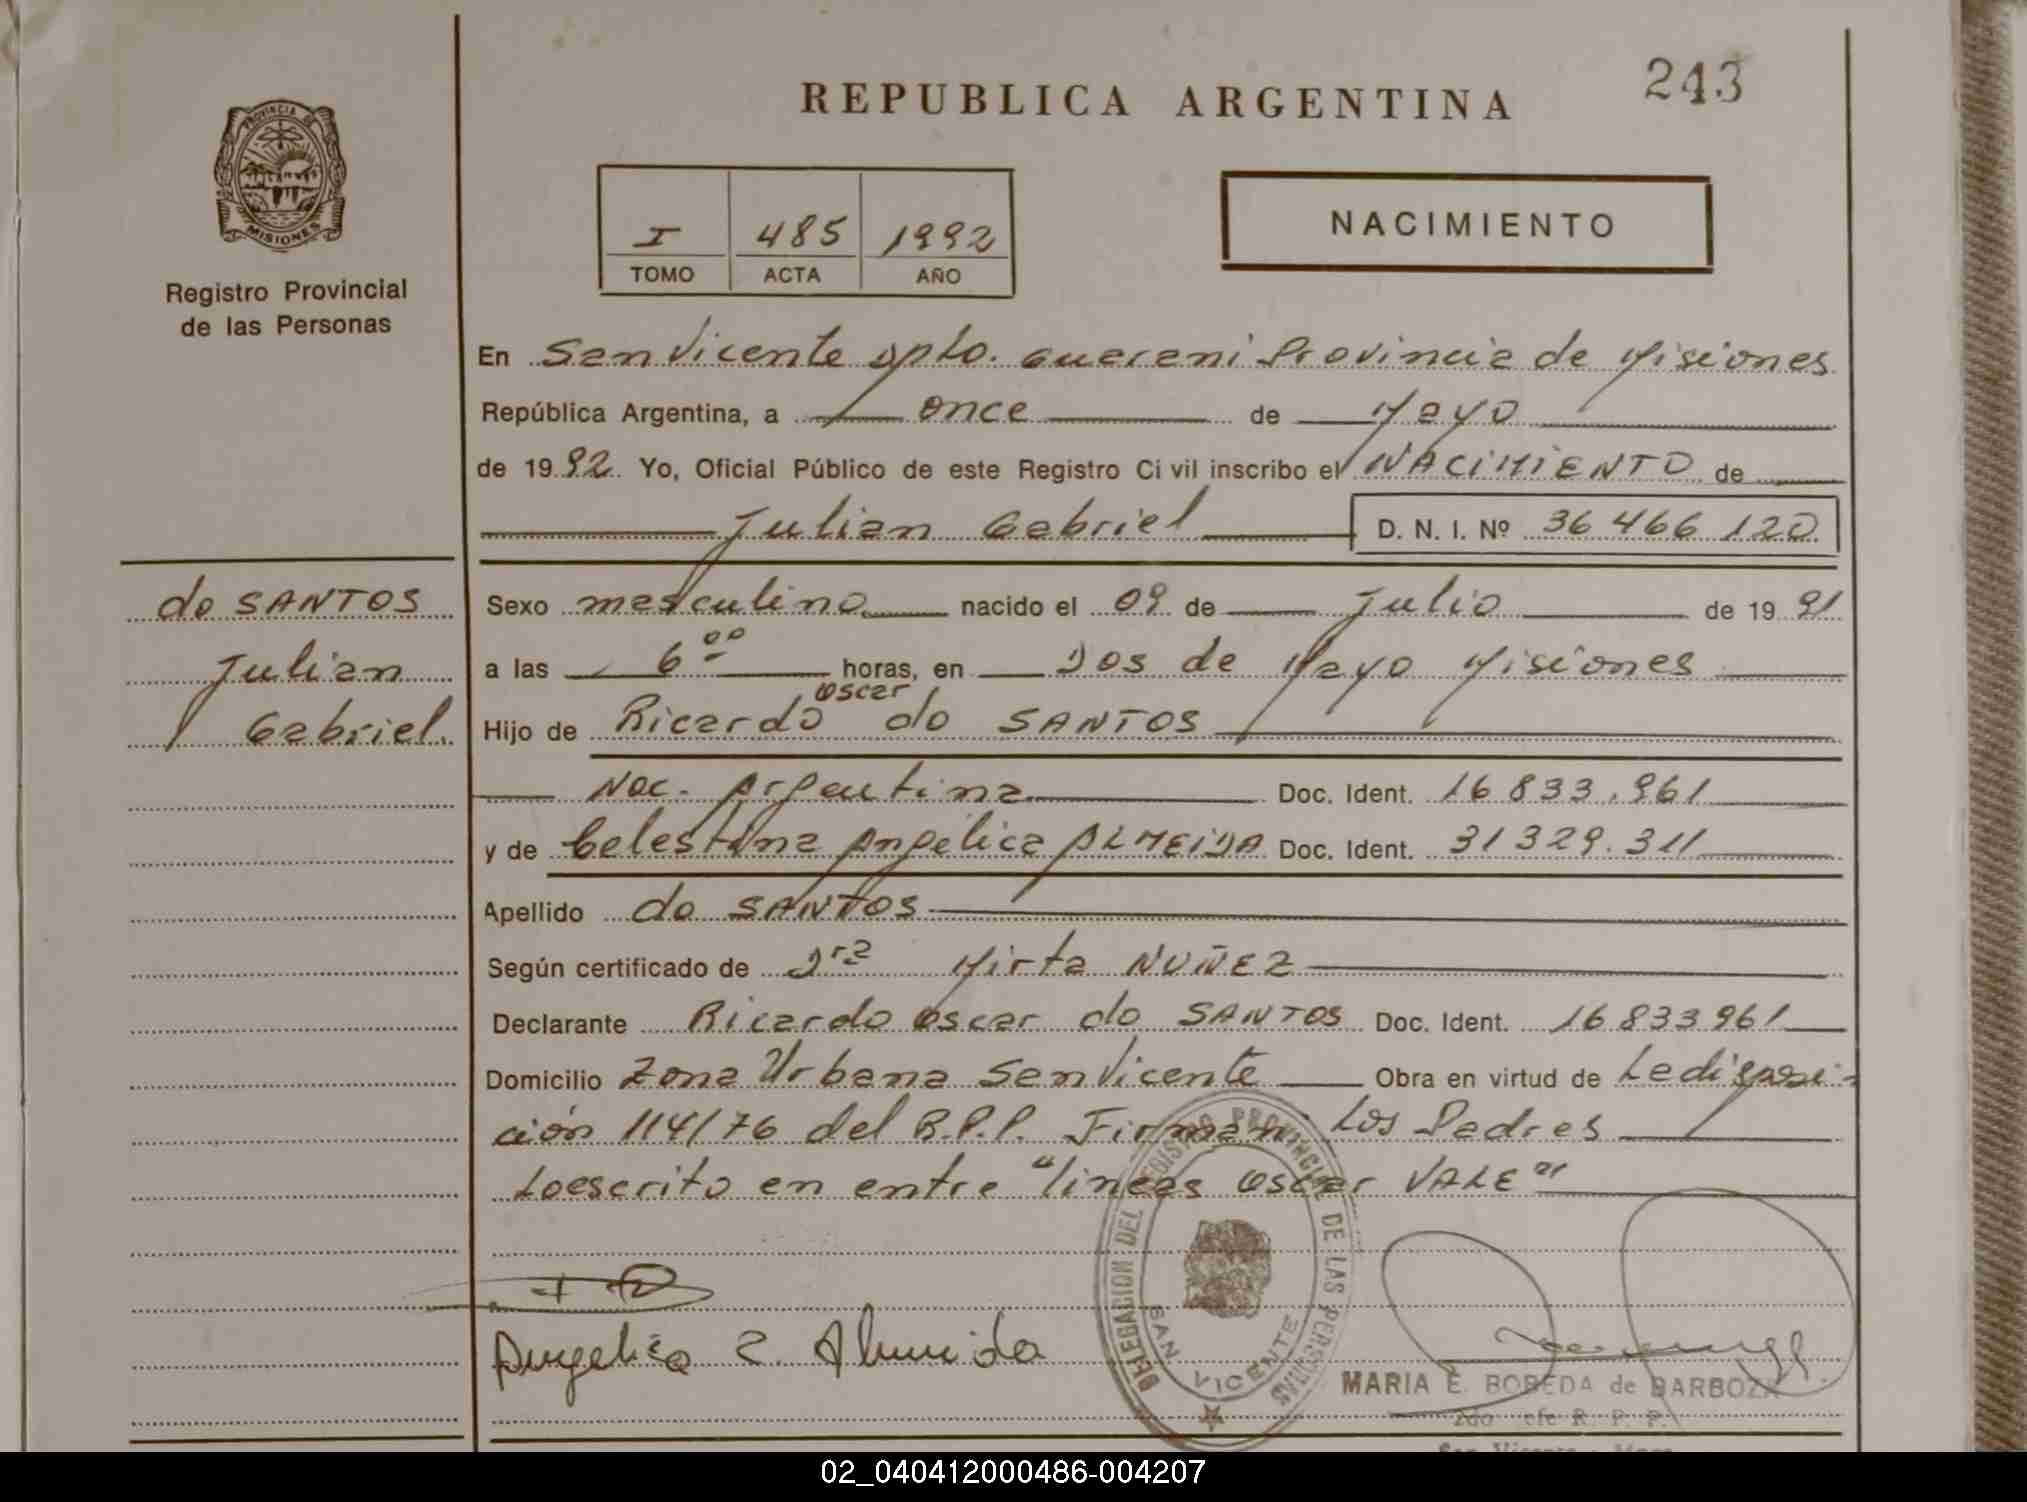 243
REPUBLICA ARGENTINA
PROVINCIA DE
MISIONES
Registro Provincial
de las Personas
I 485 1992
TOMO ACTA AÑO
NACIMIENTO
En San Vicente Dpto. Guarani Provincia de Misiones
República Argentina, a once de Mayo
de 1992 Yo, Oficial Público de este Registro Civil inscribo el NACIMIENTO de
Julian Gabriel D. N. I. Nº 36 466 120
do SANTOS
Julian
Gabriel.
Sexo masculino nacido el 09 de Julio de 1991
a las 6⁰⁰ horas, en Dos de Mayo Misiones
Oscar
Hijo de Ricardo do SANTOS
Nac. Argentina Doc. Ident. 16 833.961
y de Celestina Angélica ALMEIDA Doc. Ident. 31 329.311
Apellido do SANTOS
Según certificado de Dra Mirta NUÑEZ
Declarante Ricardo Oscar do SANTOS Doc. Ident. 16 833 961
Domicilio Zona Urbana San Vicente Obra en virtud de La disposi-
ción 114/76 del R.P.P. Firman Los Padres
Lo escrito en entre "lineas Oscar VALE"
Angelica C. Almeida
DELEGACION DEL REGISTRO PROVINCIAL DE LAS PERSONAS
SAN VICENTE
MARIA E. BOBEDA de BARBOZA
R. P. P.
02_040412000486-004207